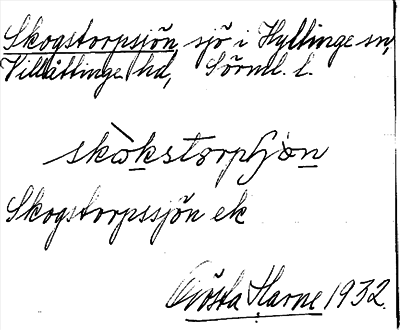 Skogstorpsjön, sjö i Hyltinge sn,
Villåttinge hd, Sörml. l.
skòkstorpsjo̲n
Skogstorpssjön ek
Gösta Harne 1932.